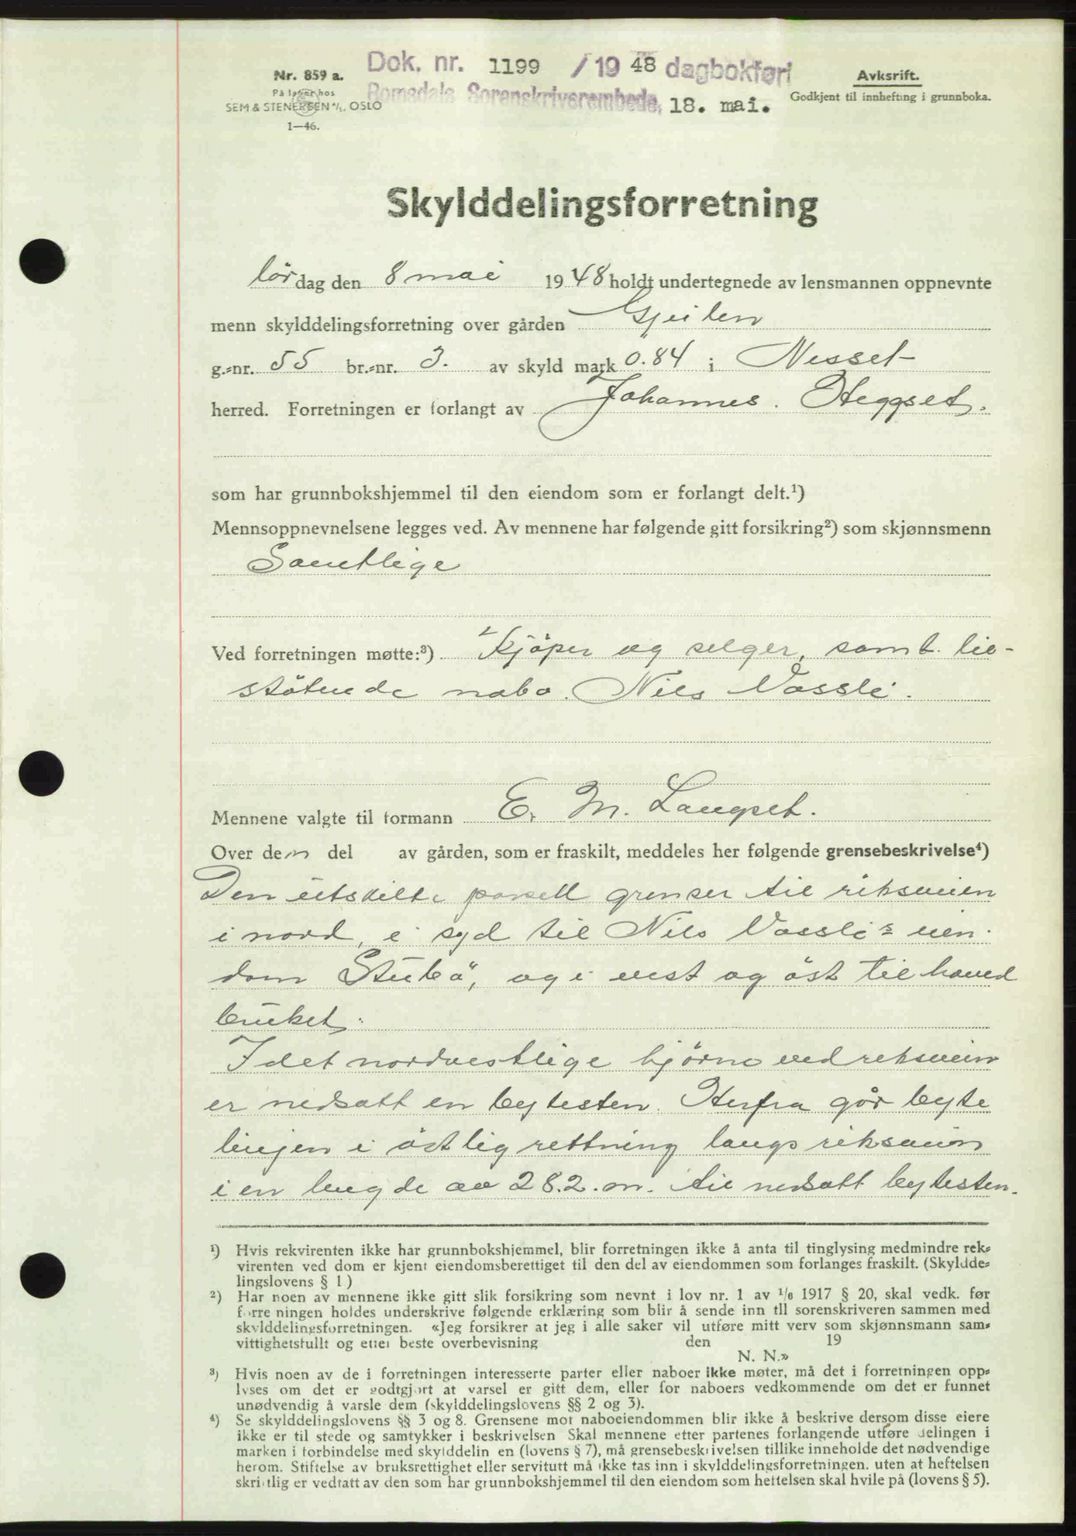 Dok. nr. 1199 /19 48 dagbokført
Nr. 859 a.
Avksrift.
På lager hos
Romsdals Sorenskriverembede, 18. mai.
Godkjent til innhefting i grunnboka.
SEM & STENERSEN A/S, OSLO
1—46.
Skylddelingsforretning
lørdag den 8 mai 1948 holdt undertegnede av lensmannen oppnevnte
menn skylddelingsforretning over gården Gjeilen
g.-nr. 55 br.-nr. 3. av skyld mark 0.84 i Nesset
herred. Forretningen er forlangt av Johannes. Heggset.
som har grunnbokshjemmel til den eiendom som er forlangt delt.¹)
Mennsoppnevnelsene legges ved. Av mennene har følgende gitt forsikring²) som skjønnsmenn
Samtlige
Ved forretningen møtte:³) Kjöper og selger, samt tie-
stötende nabo. Nils Vassli.
Mennene valgte til formann E. M. Langset.
Over den del av gården, som er fraskilt, meddeles her følgende grensebeskrivelse⁴)
Den utskilte parsell grenser til riksveien
i nord, i syd til Nils Vassli's eien-
dom "Stubö", og i vest og öst til hoved
bruket.
I det nordvestlige hjörne ved riksveien
er nedsatt en bytesten. Herfra går byte
linjen i östlig rettning langs riksveien
i en lengde av 28.2. m. til nedsatt bytesten.
¹) Hvis rekvirenten ikke har grunnbokshjemmel, blir forretningen ikke å anta til tinglysing medmindre rek-
virenten ved dom er kjent eiendomsberettiget til den del av eiendommen som forlanges fraskilt. (Skyldde-
lingslovens § 1)
²) Har noen av mennene ikke gitt slik forsikring som nevnt i lov nr. 1 av 1/6 1917 § 20, skal vedk. før
forretningen holdes underskrive følgende erklæring som blir å sende inn til sorenskriveren sammen med
skylddelingsforretningen. «Jeg forsikrer at jeg i alle saker vil utføre mitt verv som skjønnsmann sam-
vittighetsfullt og etter beste overbevisning den 19
N. N.»
³) Hvis noen av de i forretningen interesserte parter eller naboer ikke møter, må det i forretningen opp-
lyses om det er godtgjort at varsel er gitt dem, eller for naboers vedkommende om det er funnet
unødvendig å varsle dem (skylddelingslovens §§ 2 og 3).
⁴) Se skylddelingslovens §§ 3 og 8. Grensene mot naboeiendommen blir ikke å beskrive dersom disse eiere
ikke er til stede og samtykker i beskrivelsen Skal mennene etter partenes forlangende utføre delingen i
marken i forbindelse med skylddelingen (lovens § 7), må grensebeskrivelsen tillike inneholde det nødvendige
herom. Stiftelse av bruksrettighet eller servitutt må ikke tas inn i skylddelingsforretningen. uten at heftelsen
skriftlig er vedtatt av den som har grunnbokshjemmel til den eiendom som heftelsen skal hvile på (lovens § 5).